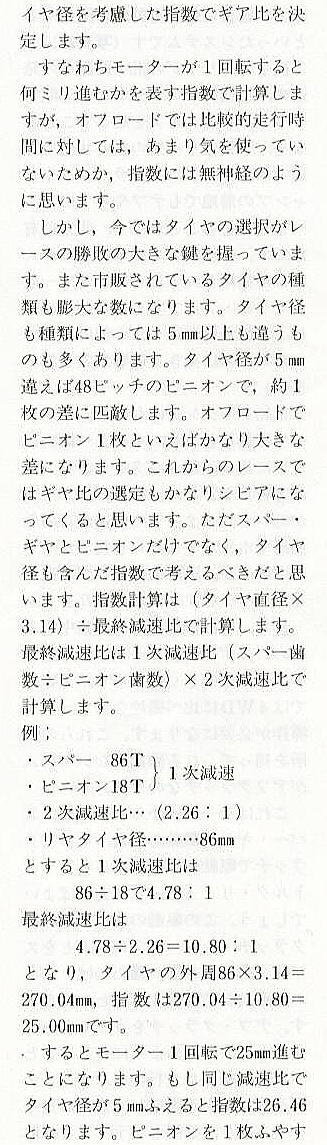 イヤ径を考慮した指数でギア比を決
定します。
すなわちモーターが1回転すると
何ミリ進むかを表す指数で計算しま
すが，オフロードでは比較的走行時
間に対しては，あまり気を使ってい
ないためか，指数には無神経のよう
に思います。
しかし，今ではタイヤの選択がレ
ースの勝敗の大きな鍵を握っていま
す。また市販されているタイヤの種
類も膨大な数になります。タイヤ径
も種類によっては5㎜以上も違うも
のも多くあります。タイヤ径が5㎜
違えば48ピッチのピニオンで，約1
枚の差に匹敵します。オフロードで
ピニオン1枚といえばかなり大きな
差になります。これからのレースで
はギヤ比の選定もかなりシビアにな
ってくると思います。ただスパー・
ギヤとピニオンだけでなく，タイヤ
径も含んだ指数で考えるべきだと思
います。指数計算は（タイヤ直径×
3.14）÷最終減速比で計算します。
最終減速比は1次減速比（スパー歯
数÷ピニオン歯数）×2次減速比で
計算します。
例：
・スパー　86T
・ピニオン18T｝1次減速
・2次減速比…（2.26：1）
・リヤタイヤ径………86㎜
とすると1次減速比は
86÷18で4.78：1
最終減速比は
4.78÷2.26＝10.80：1
となり，タイヤの外周86×3.14＝
270.04㎜，指数は270.04÷10.80＝
25.00㎜です。
するとモーター1回転で25㎜進む
ことになります。もし同じ減速比で
タイヤ径が5㎜ふえると指数は26.46
となります。ピニオンを1枚ふやす